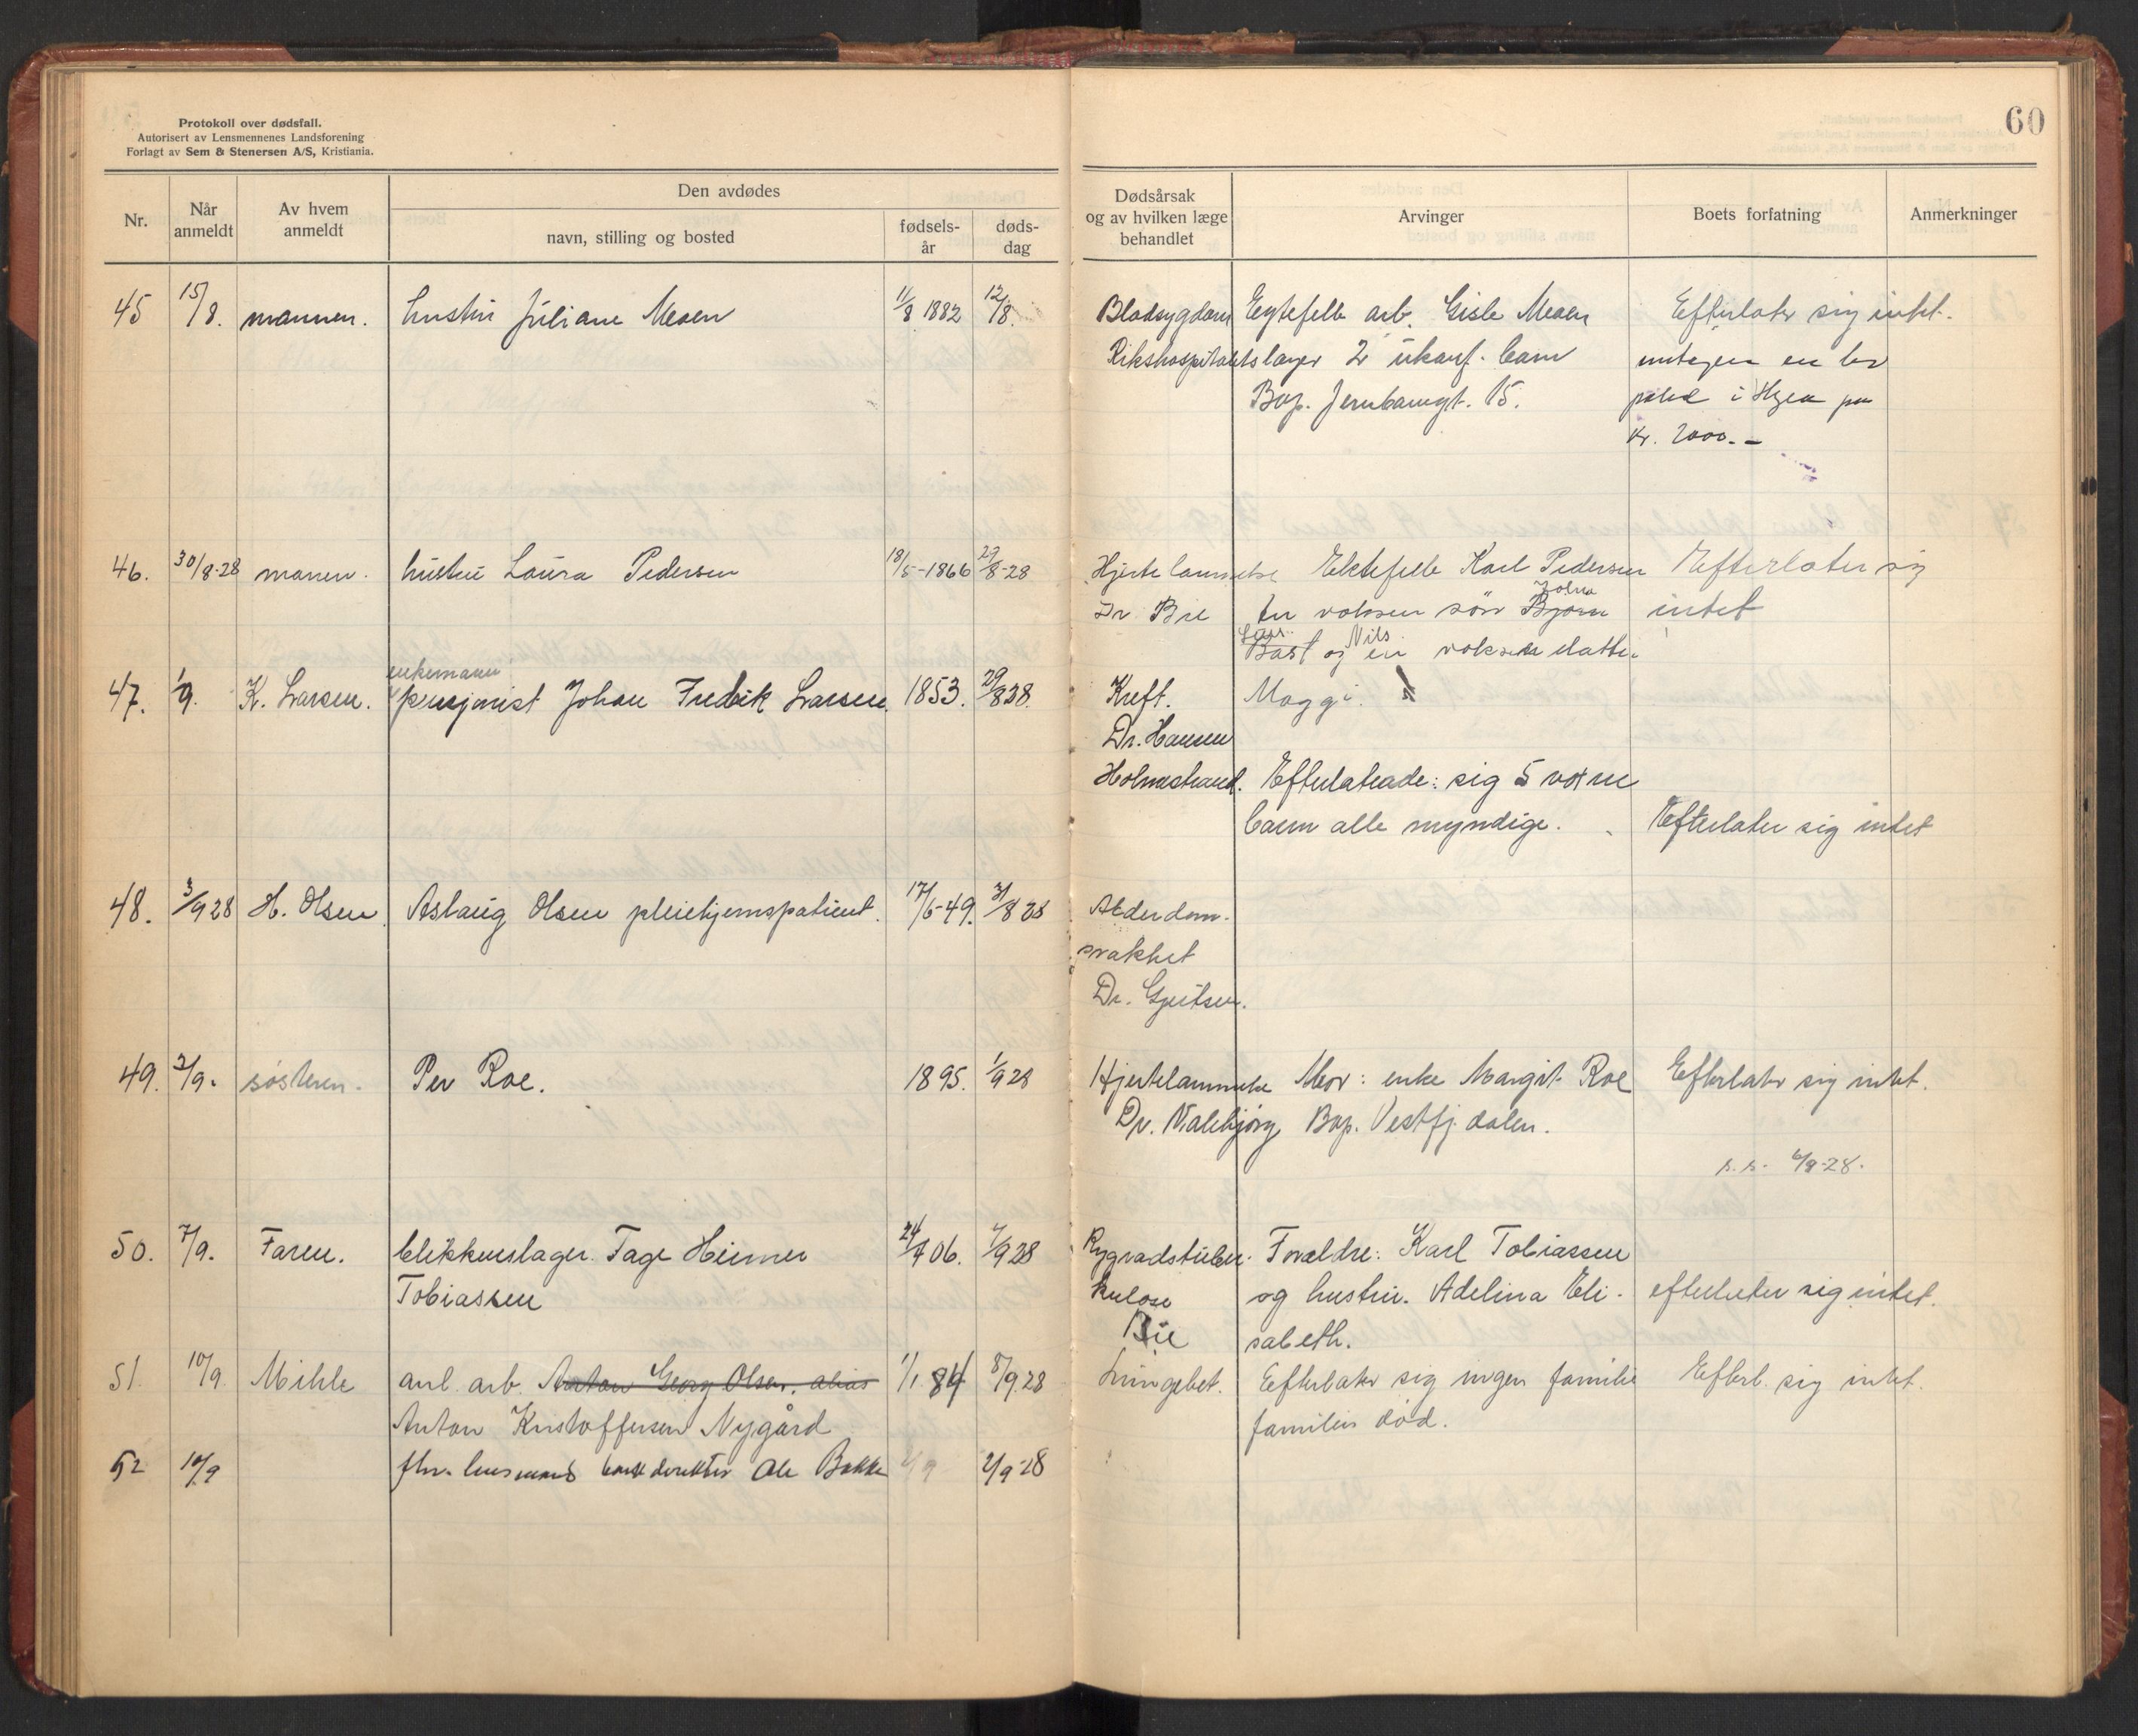 Protokoll over dødsfall.
Autorisert av Lensmennenes Landsforening
Forlagt av Sem & Stenersen A/S, Kristiania.
60
Nr.
Når anmeldt
Av hvem anmeldt
Den avdødes
navn, stilling og bosted
fødsels-år
døds-dag
Dødsårsak og av hvilken læge behandlet
Arvinger
Boets forfatning
Anmerkninger
45 15/8. mannen. hustru Juliane Moen 11/8 1882 12/8. Blodsygdom Egtefelle arb. Gisle Moen Efterlater sig intet.
Rikshospitalets læger 2 ukonf. barn
Bop. Jernbanegt. 15.
kr. 2000.-
46. 30/8-28 mannen. hustru Laura Pedersen 18/5-1866 29/8-28 Hjertelammelse Ektefelle Karl Pedersen Efterlater sig
Dr Bie En voksen sön Bjorn intet
og en voksen datter
enkemann
47. 1/9. K. Larsen. pensjonist Johan Fredrik Larsen. 1853. 29/8 28. Kreft. Maggi.
Dr. Hansen
Holmestrand. Efterlatende: sig 5 voxne
barn alle myndige. Efterlater sig intet
48. 3/9 28 H. Olsen. Aslaug Olsen pleiehjemspatient. 17/6-49. 31/8 28 Alderdom-
svakhet
Dr.
49. 2/9. søsteren. Per Roe. 1895. 1/9 28 Hjertelammelse Mor: enke Margit Roe Efterlater sig intet.
Dr. Bop. Vestfj.dalen.
6/9-28.
50. 7/9. Faren. blikkenslager Tage Heimer 24/7 06. 7/9 28 Rygradstuber- Forældre: Karl Tobiassen
Tobiassen kulose og hustru. Adelina Eli- efterlater sig intet.
Bie sabeth.
51. 10/9 Mihle anl. arb. Anton Georg Olsen. alias 1/1 84 8/9.28 Lungebet. Efterlater sig ingen familie Efterl. sig intet.
Anton Kristoffersen Nygård familien død.
52 10/9 fhv. lensmand bankdirektør Ole Bakke 2/9-28